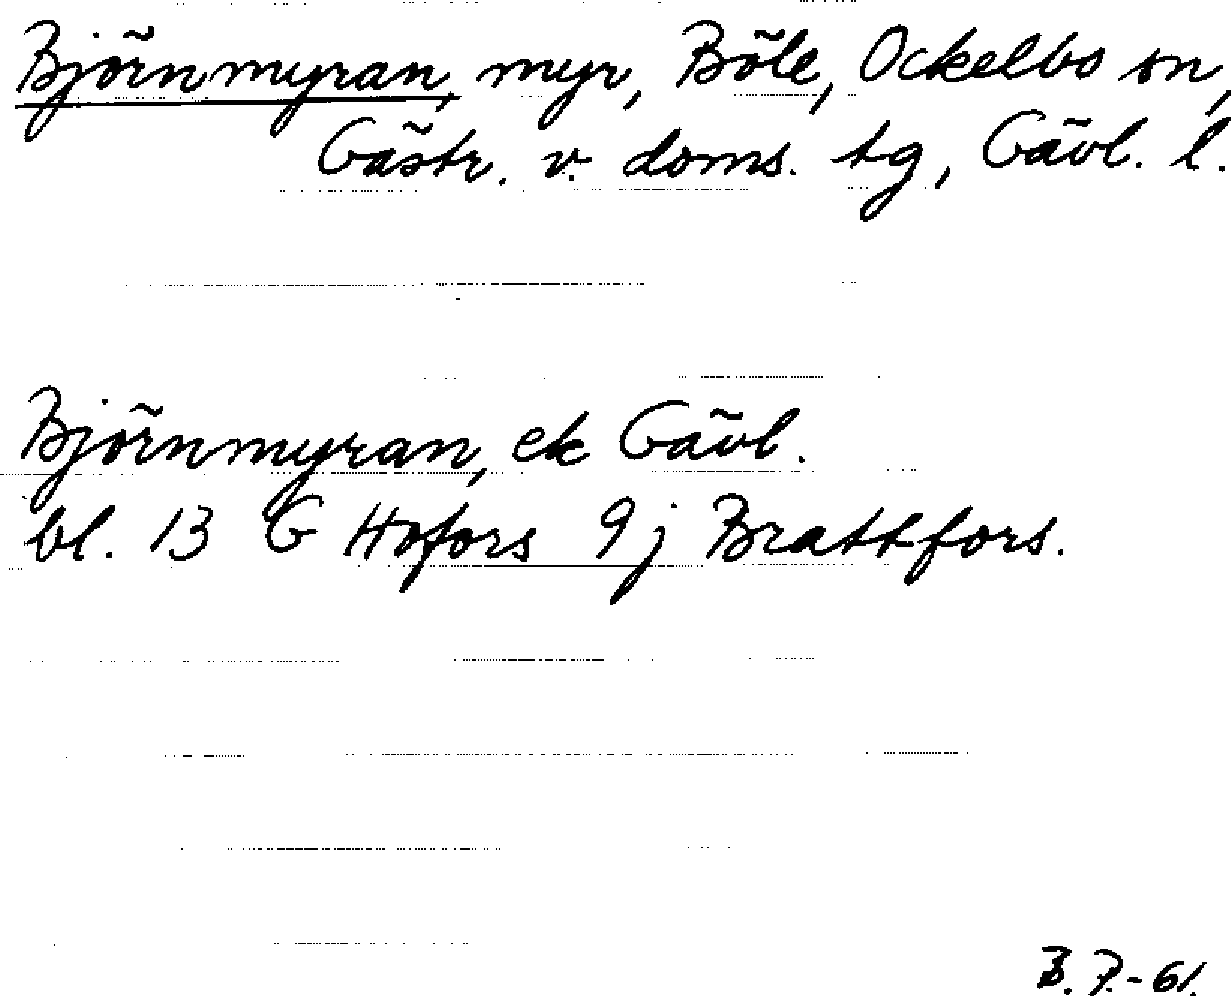 Björnmyran, myr, Böle, Ockelbo sn,
Gästr. v. doms. tg, Gävl. l.
Björnmyran, ek Gävl.
bl. 13 G Hofors 9j Brattfors.
B. P.-61.